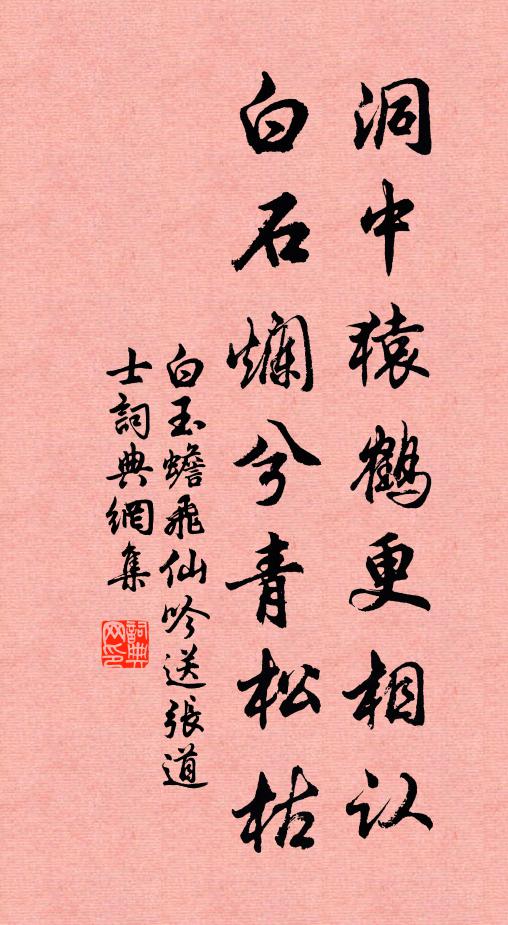 洞中猿鹤更相认
白石爛兮青松枯
白玉蟾飛仙吟送張道
士詞典網集
詞典网印